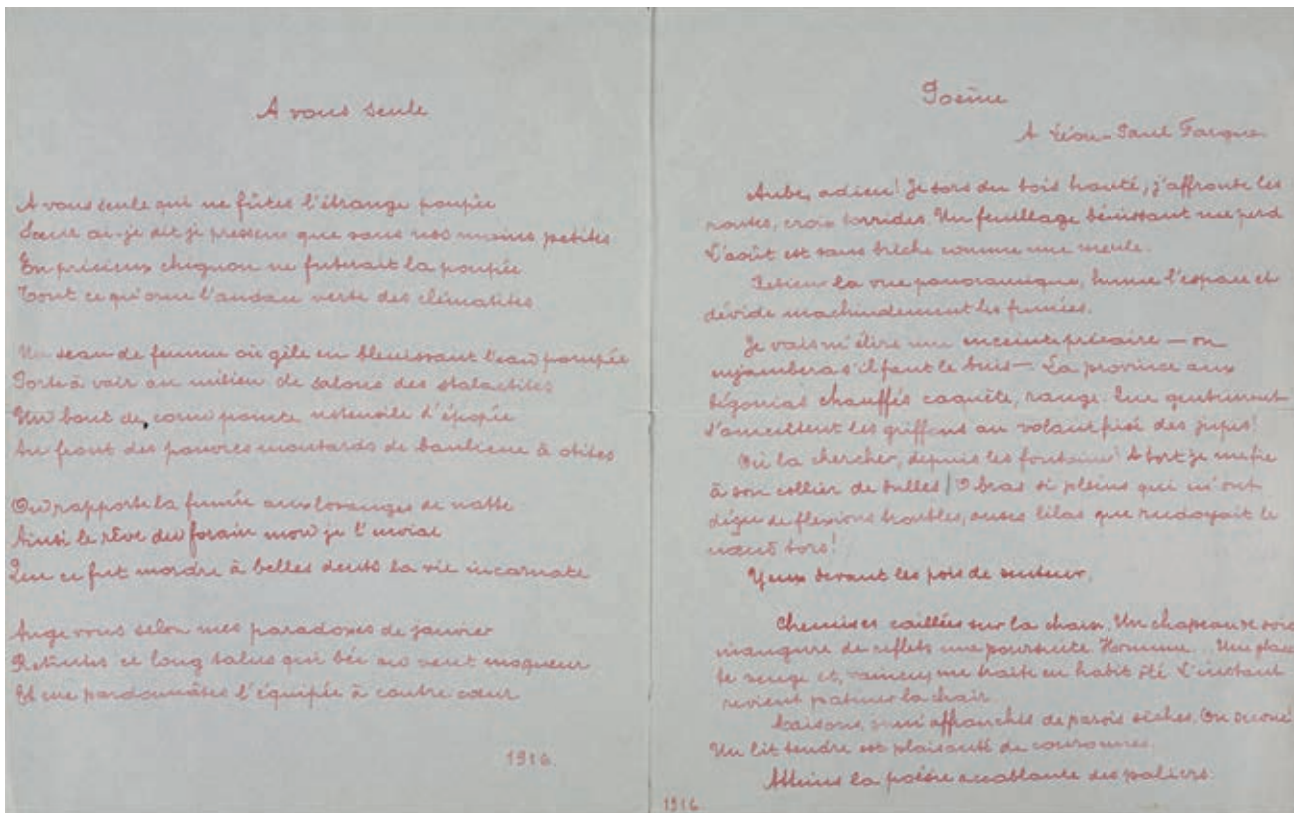 A vous seule
A vous seule qui ne fûtes l'étrange poupée
Sœur ai-je dit je pressens que sans nos mains petites
En précieux chignon ne futurait la poupée
Tout ce qu'orne l'andau verte des clématites
Un seau de femme où gèle en bleuissant l'eau pompée
Porte à voir au milieu de salons des stalactites
Un bout de corne pointe ustensile d'épopée
Au front des pauvres moutards de banlieue à otites
On rapporte la fumée aux losanges de natte
Ainsi le rêve du forain mon je l'enviai
Que ce fut mordre à belles dents la vie incarnate
Ange vous selon mes paradoxes de janvier
Retîntes ce long talus qui bée au vent moqueur
Et me pardonnâtes l'équipée à contre cœur
1916.
Poème
A Léon-Paul Fargue.
Aube, adieu! Je sors du bois hanté; j'affronte les
routes, croix torrides. Un feuillage bénissant me perd
L'août est sans brèche comme une meule.
Retiens la vue panoramique, hume l'espace et
dévide machinalement les fumées.
Je vais m'élire une enceinte précaire — on
enjambera s'il faut le buis — La province aux
bégonias chauffés caquète, range. Que gentiment
s'ameutent les griffons au volant frisé des jupes!
Où la chercher, depuis les fontaines! A tort je me fie
à son collier de bulles / O bras si pleins qui m'ont
déçu de flexions troubles, lilas que rudoyait le
nœud tors!
Yeux devant les pois de senteur.
Chemises caillées sur la chaise. Un chapeau de soie
inaugure de reflets une poursuite Homme.. Une glace
te venge et, vaincu, me traite en habit ôté L'instant
revient patiner la chair.
Maisons, je m'affranchis de parois sèches. On secoue!
Un lit tendre est plaisanté de couronnes.
Atteins la poésie accablante des paliers.
1916